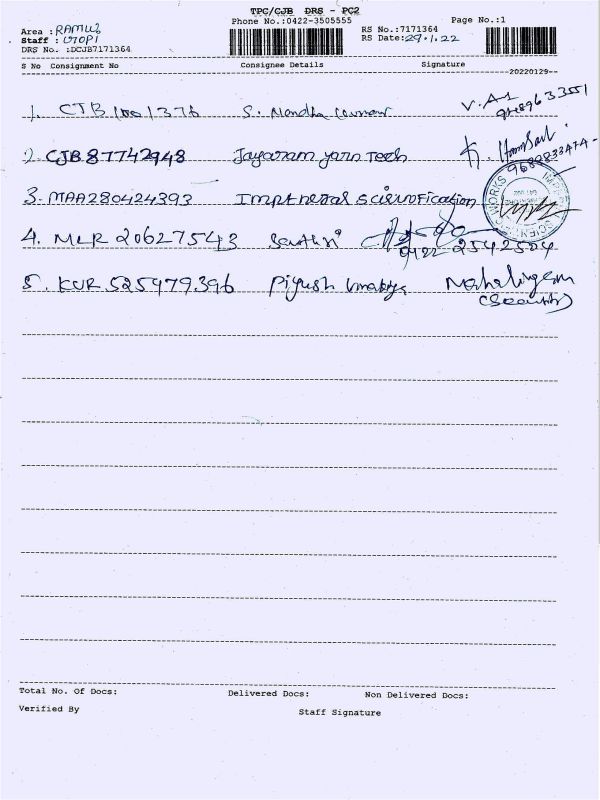 TPC/CJB DRS - PC2
Phone No.:0422-3505555 Page No.:1
Area : RAMU
Staff : GOPI
RS No.:7171364
DRS No. :DCJB7171364
RS Date:29.1.22
S No Consignment No Consignee Details Signature
--20220129--
1. CJB 1001376 S. Nandha
2. CJB 87742948 Jayaram yarn Tech
3. MAA280424393 Imptheral
4. MLR 20627543 Santhi
0422 2542504
5. KUR 525979396 Piyush
Mahalingam
(Security)
Total No. Of Docs: Delivered Docs: Non Delivered Docs:
Verified By Staff Signature